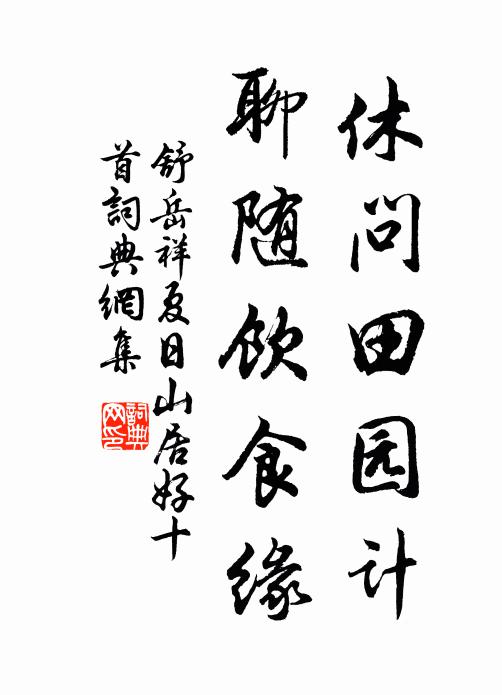 休问田园计
聊随饮食缘
舒岳祥夏日山居好十
首詞典網集
詞典
网印